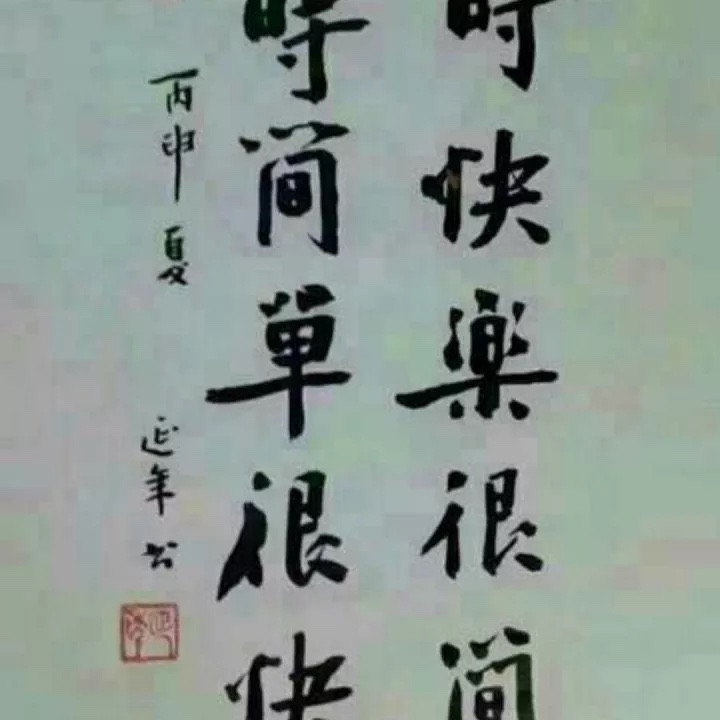 時快樂很简
時简單很快
丙申夏
延年书